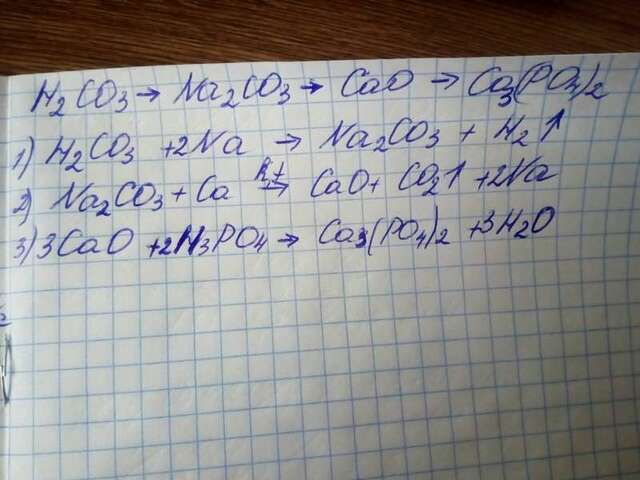 H₂CO₃ → Na₂CO₃ → CaO → Ca₃(PO₄)₂
1) H₂CO₃ + 2Na → Na₂CO₃ + H₂↑
2) Na₂CO₃ + Ca → CaO + CO₂↑ + 2Na
3) 3CaO + 2H₃PO₄ → Ca₃(PO₄)₂ + 3H₂O